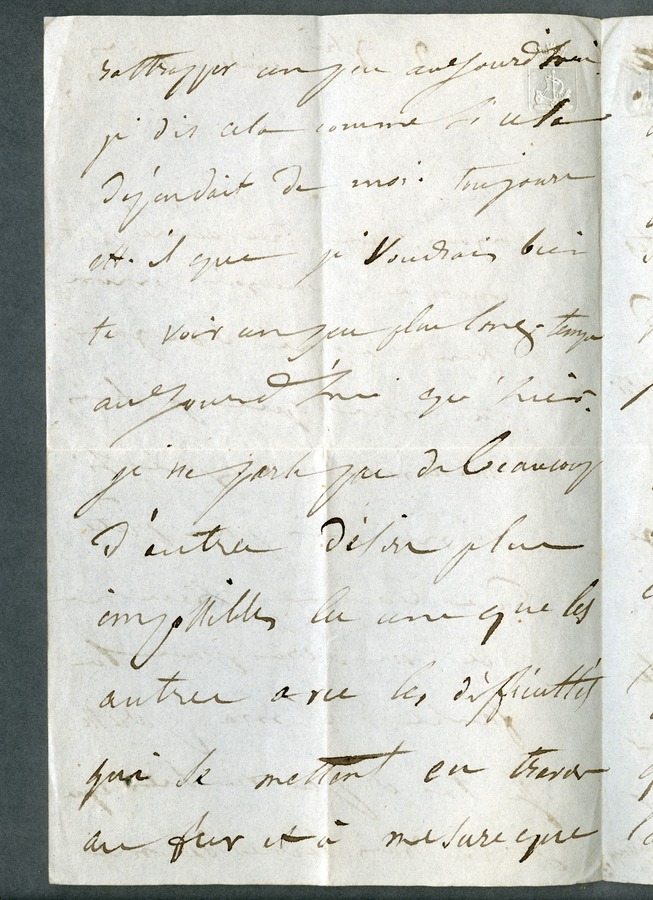 rattrapper un peu aujourd'hui.
je dis cela comme si cela
dépendait de moi. toujours
est-il que je voudrais bien
te voir un peu plus long-temps
aujourd'hui qu'hier.
je ne parle pas de beaucoup
d'autres désirs plus
impossibles les uns que les
autres avec les difficultés
qui se mettent en travers
au fur et à mesure que